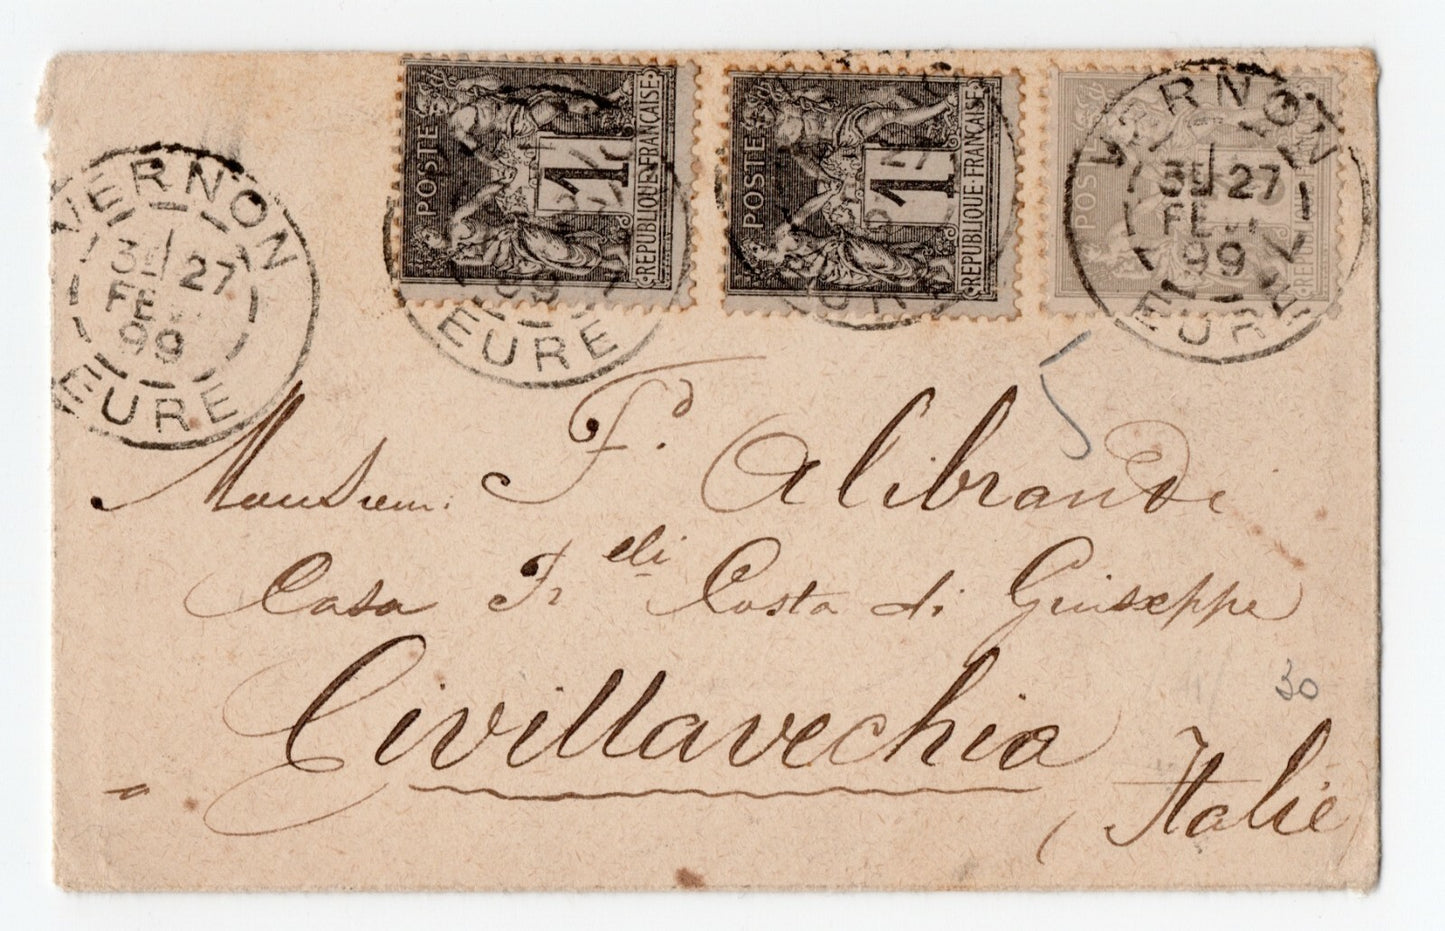 POSTE
1
REPUBLIQUE·FRANÇAISE
POSTE
1
REPUBLIQUE·FRANÇAISE
POSTE
3
REPUBLIQUE FRANÇAISE
VERNON
3E 27
FEVR
99
EURE
VERNON
3E 27
FE
99
EURE
99
EURE
27
5
Monsieur F.d Alibrandi
Casa Fr elli Costa di Giuseppe
Civillavechia
Italie
30